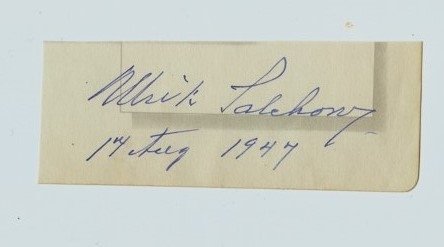 Ulrich Salchow
14 Aug 1947